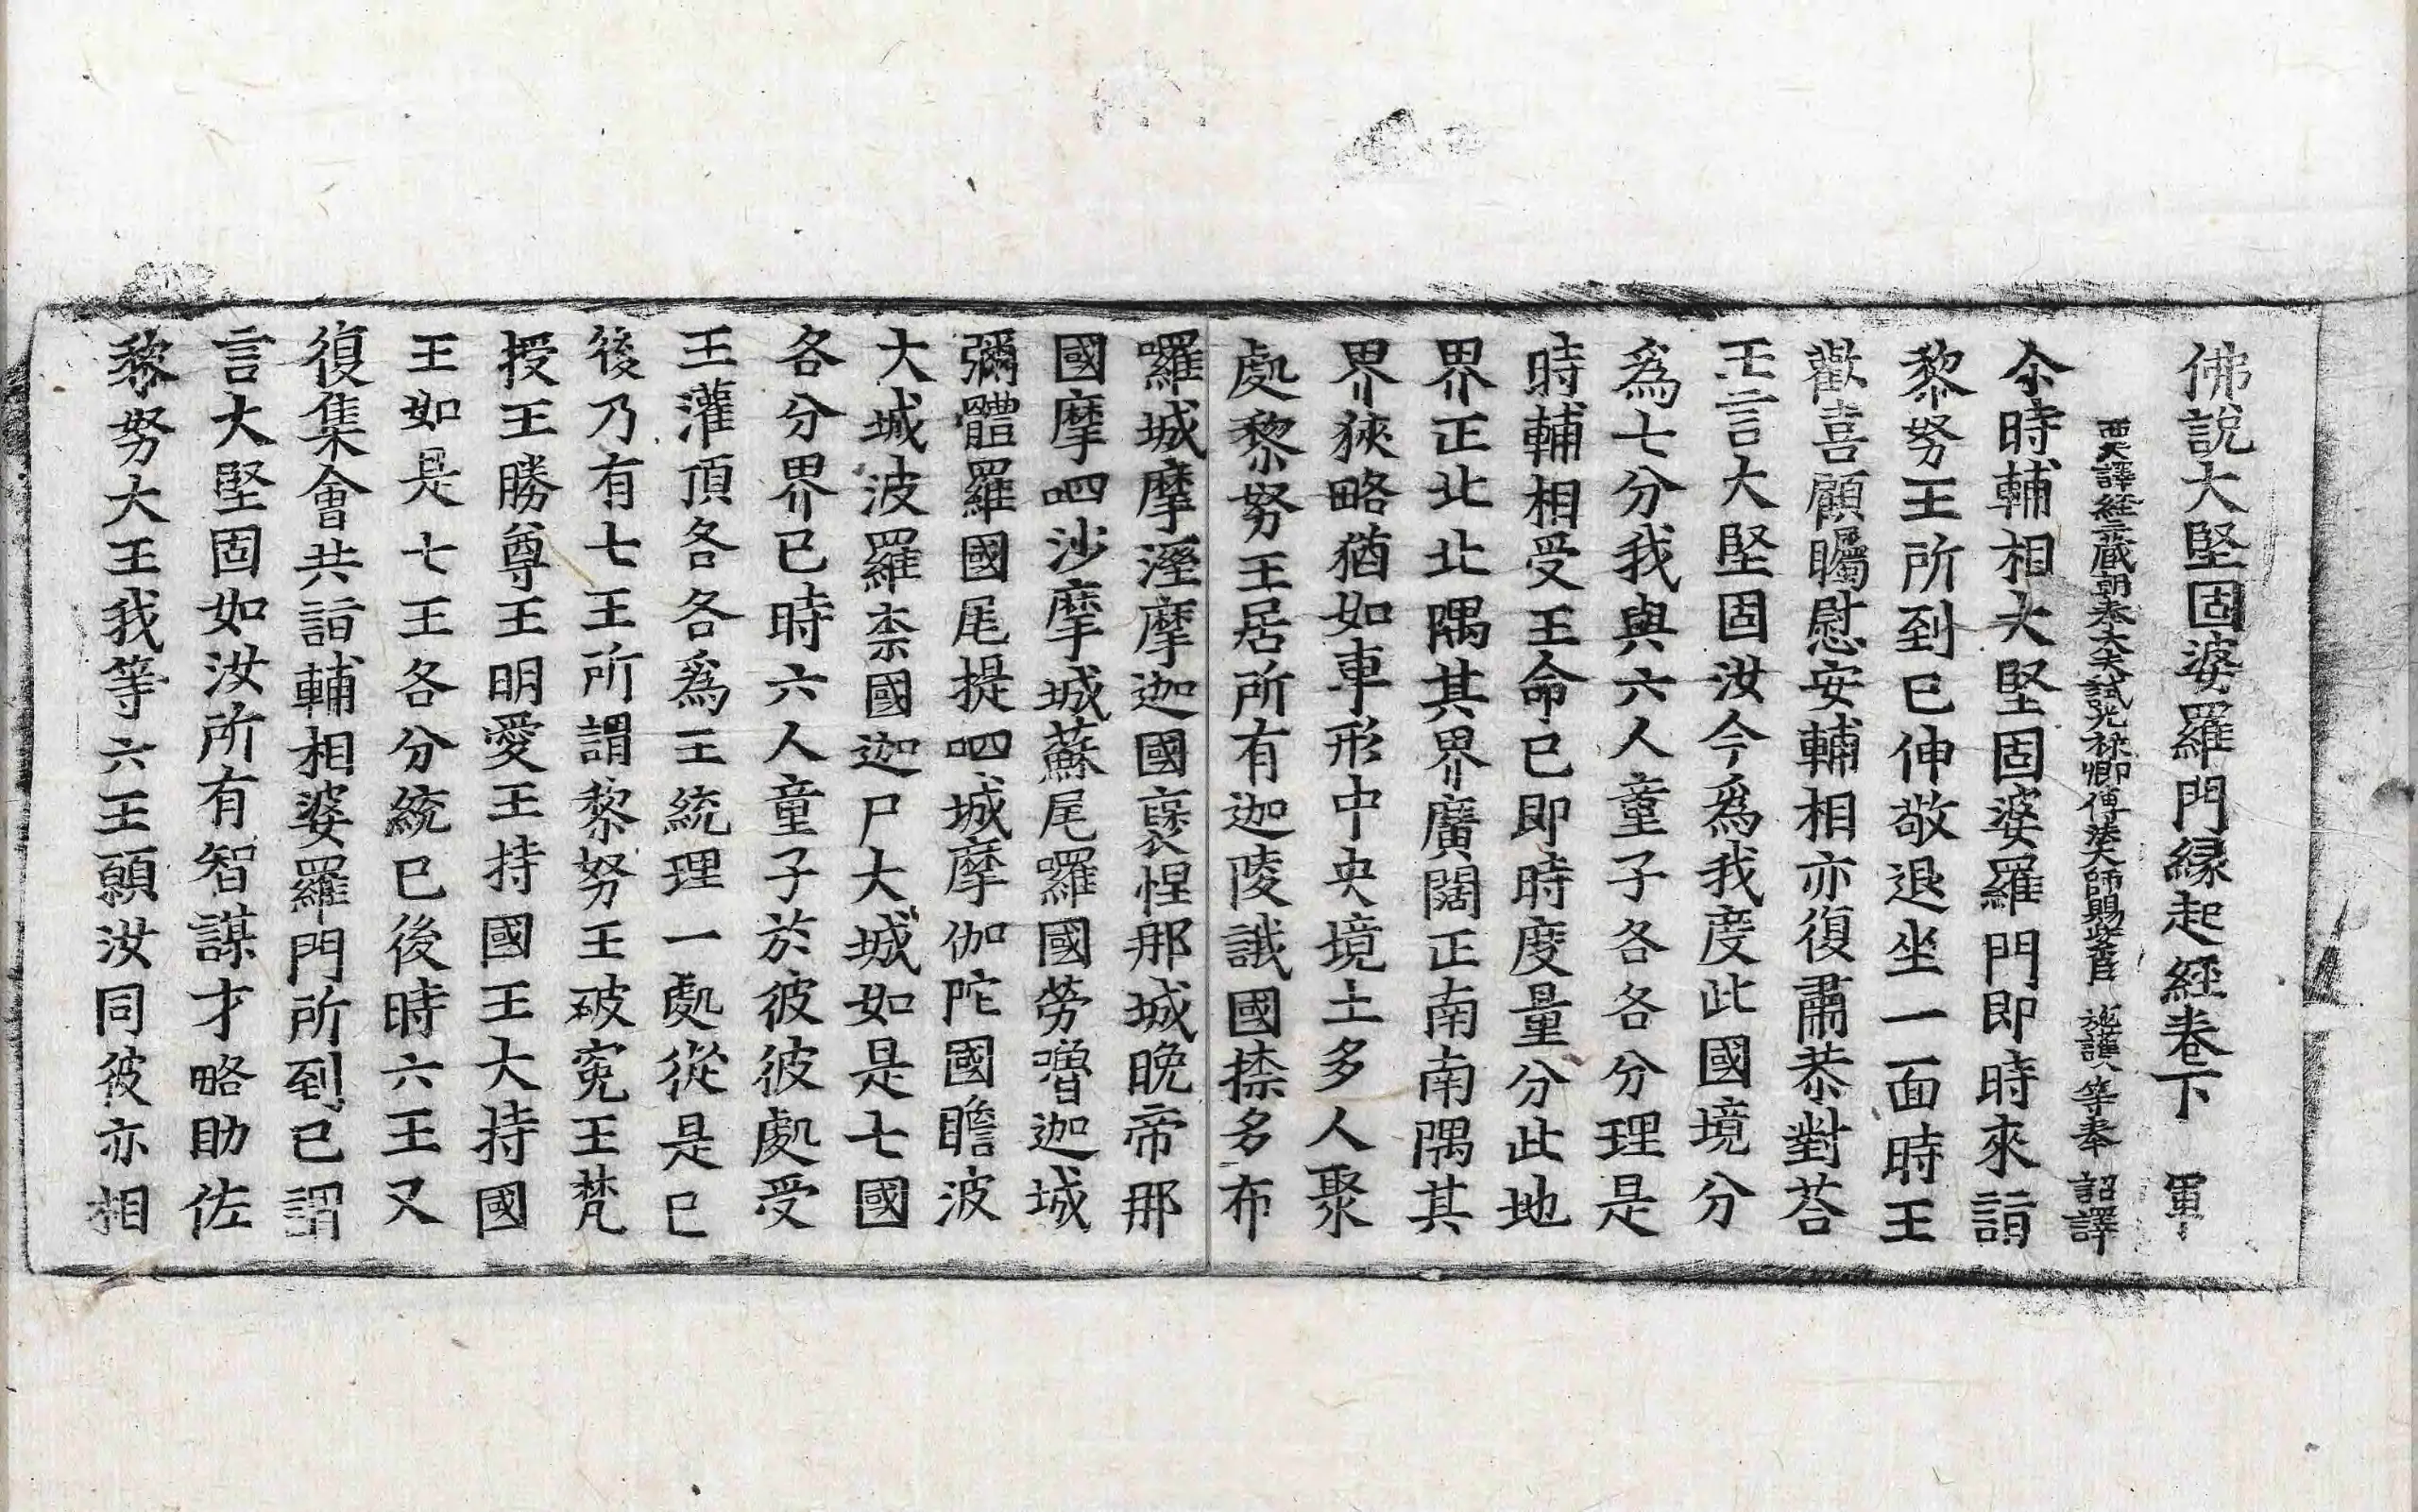 佛說大堅固婆羅門縁起經卷下 軍
西天譯經三藏朝奉大夫試光祿卿傳法大師賜紫臣 施護 等奉 詔譯
尒時輔相大堅固婆羅門即時來詣
黎努王所到已伸敬退坐一面時王
歡喜顧矚慰安輔相亦復肅恭對荅
王言大堅固汝今爲我度此國境分
爲七分我與六人童子各各分理是
時輔相受王命已即時度量分此地
界正北北隅其界廣闊正南南隅其
界狹略猶如車形中央境土多人聚
處黎努王居所有迦陵誐國捺多布
囉城摩溼摩迦國裒怛那城晚帝那
國摩呬沙摩城蘇尾囉國勞嚕迦城
彌體羅國尾提呬城摩伽陀國瞻波
大城波羅柰國迦尸大城如是七國
各分界已時六人童子於彼彼處受
王灌頂各各爲王統理一處從是已
後乃有七王所謂黎努王破寃王梵
授王勝尊王明愛王持國王大持國
王如是七王各分統已後時六王又
復集會共詣輔相婆羅門所到已謂
言大堅固如汝所有智謀才略助佐
黎努大王我等六王願汝同彼亦相